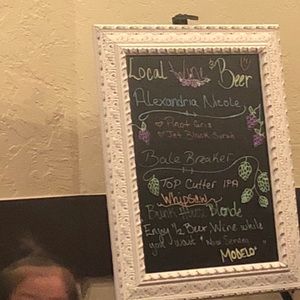 Local Wine & Beer
Alexandria Nicole
Pinot Gris
Jet Black Syrah
Bale Breaker
Top Cutter IPA
Whipsaw
Blonde
Enjoy ½ Beer, Wine while
you wait * Now Serving
MODELO